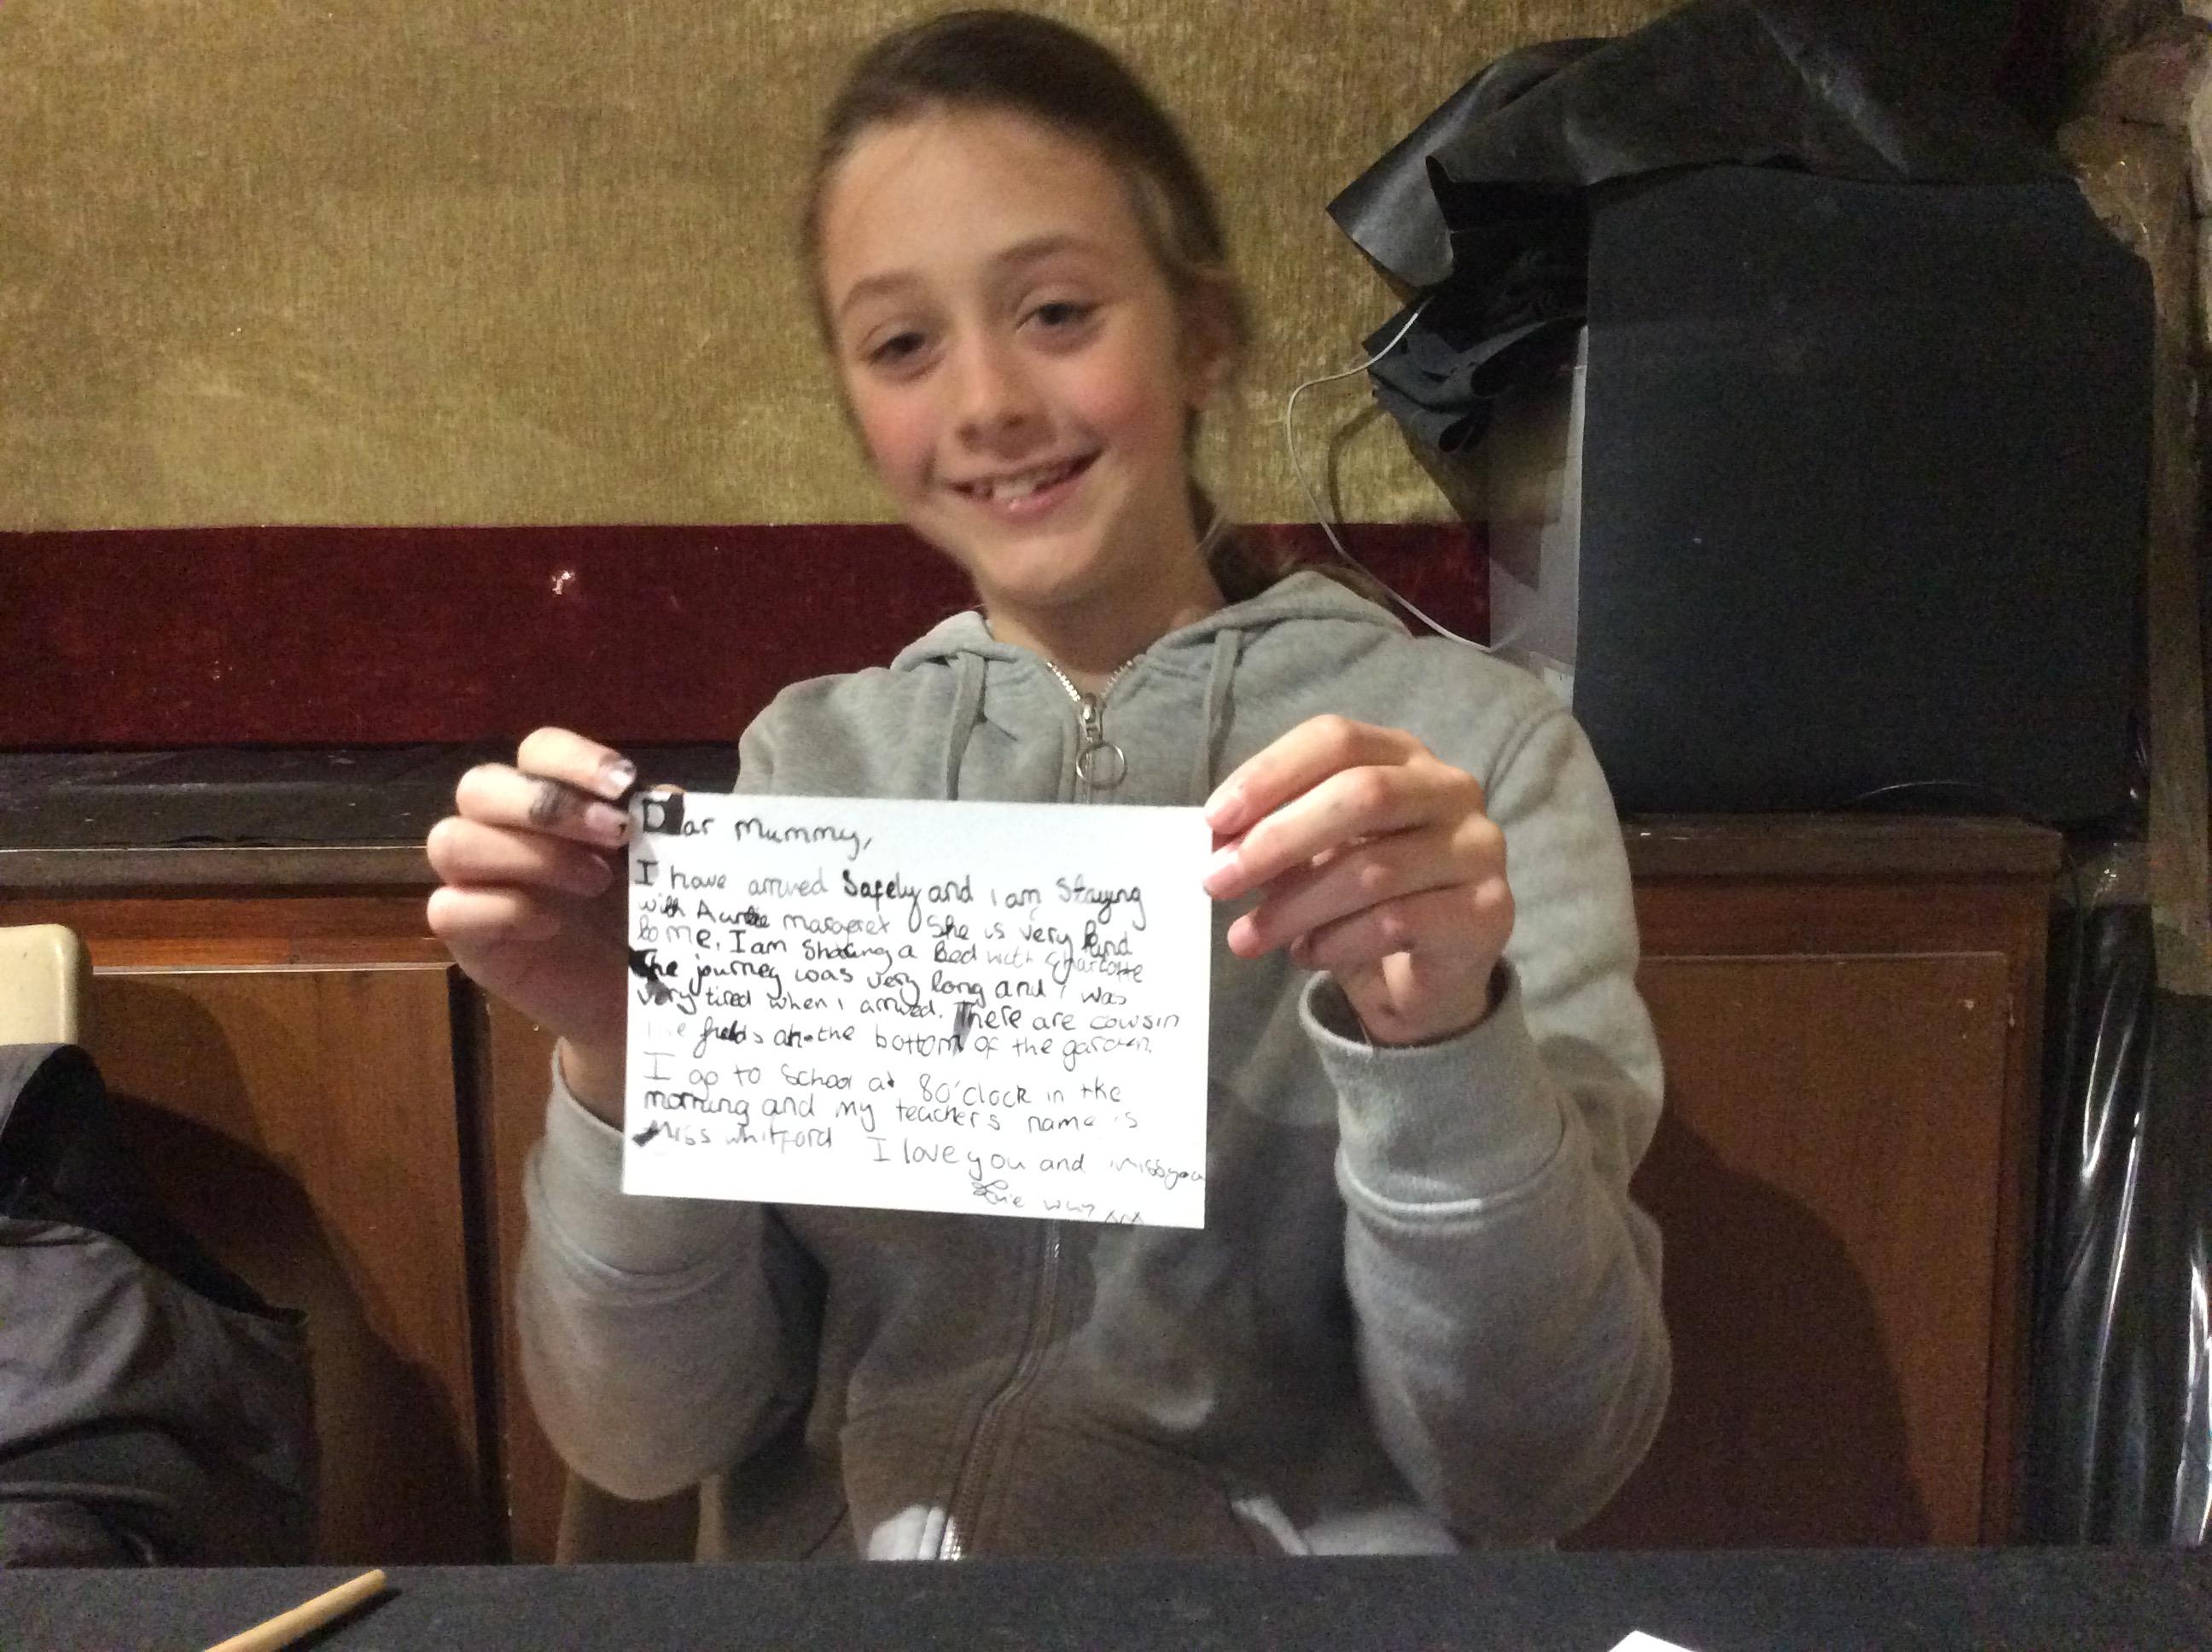 Dear Mummy,
I have arrived Safely and I am Staying
with Auntie Margeret She is very kind
to me. I am Sharing a Bed with Charlotte
The journey was very long and I was
very tired when I arrived. There are cows in
the fields at the bottom of the garden.
I go to School at 8 o'clock in the
morning and my teachers name is
Miss Whitford I love you and miss you
xxx